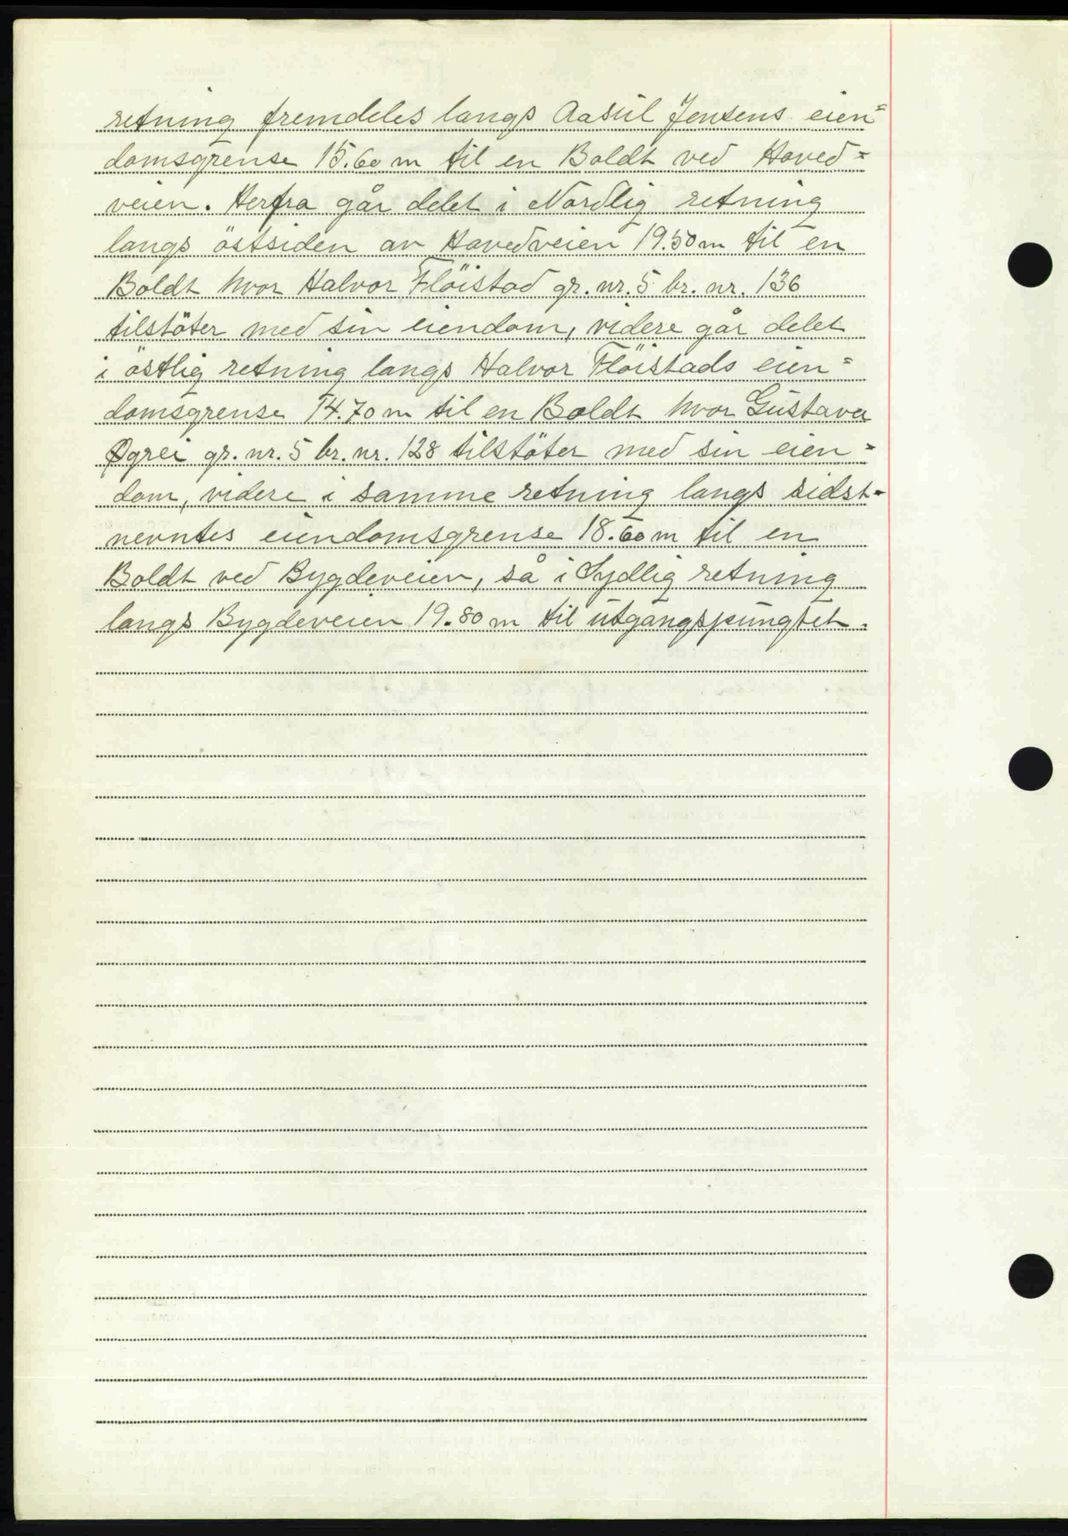 retning fremdeles langs Aasul Jensens eien=
domsgrense 15.60 m til en Boldt ved Hoved=
veien. Herfra går delet i Nordlig retning
langs östsiden av Hovedveien 19.50 m til en
Boldt hvor Halvor Flöistad gr. nr. 5 br. nr. 136
tilstöter med sin eiendom, videre går delet
i östlig retning langs Halvor Flöistads eien=
domsgrense 14.70 m til en Boldt hvor Gustava
Øgrei gr. nr. 5 br. nr. 128 tilstöter med sin eien=
dom, videre i samme retning langs sidst-
nevntes eiendomsgrense 18.60 m til en
Boldt ved Bygdeveien, så i Sydlig retning
langs Bygdeveien 19.80 m til utgangspungtet.